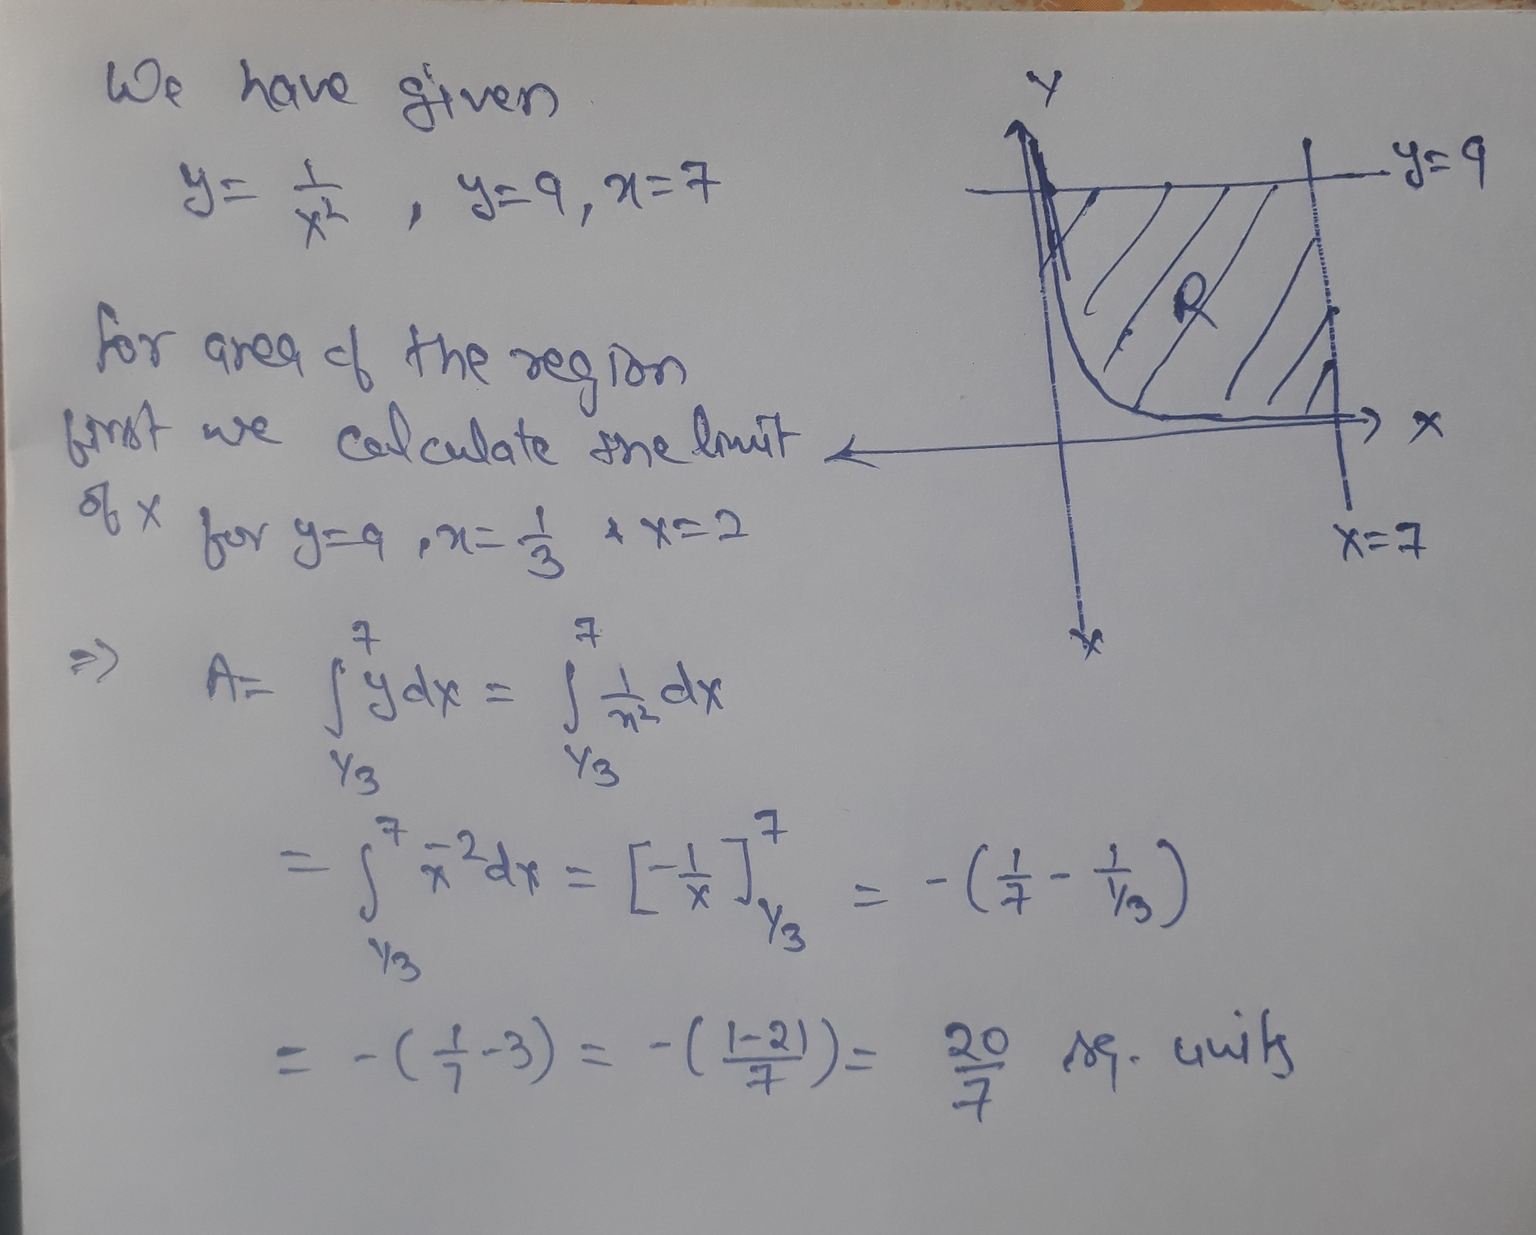 We have given
y = 1/x² , y=9, x=7
for area of the region
first we calculate the limit
of x for y=9 , x= 1/3 & x=2
=> A= ∫_{1/3}^{7} y dx = ∫_{1/3}^{7} 1/x² dx
= ∫_{1/3}^{7} x^{-2} dx = [-1/x]_{1/3}^{7} = -(1/7 - 1/(1/3))
= -(1/7 -3) = -((1-21)/7) = 20/7 sq. units
Y
y=9
R
X
x=7